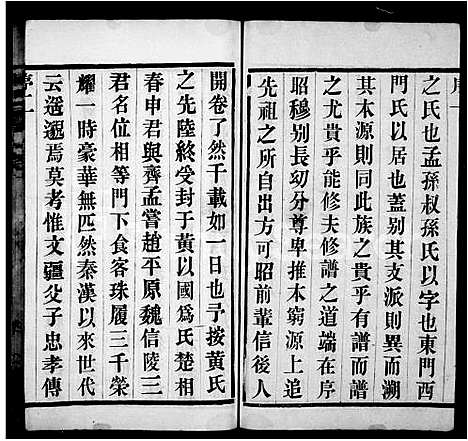 之氏也孟孫叔孫氏以字也東門西
門氏以居也蓋别其支派則異而溯
其本源則同此族之所貴而有譜
之尤貴乎能修夫修譜之道端在序
昭穆别長幼分尊卑推本窮源上追
先祖之所自出方可昭前輩信後人
開卷了然千載如一日也予按黄氏
之先陸終受封于黄以國爲氏楚相
春申君與齊孟嘗趙平原魏信陵三
君名位相等門下食客珠履三千榮
耀一時豪華無匹然秦漢以來世代
云遥邈焉莫考惟文疆父子忠孝傳
序二